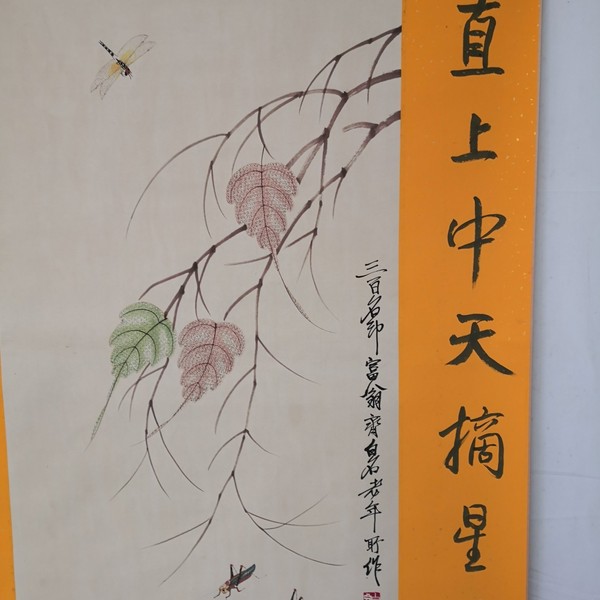 直上中天摘星
三百石印富翁齊白石老年所作